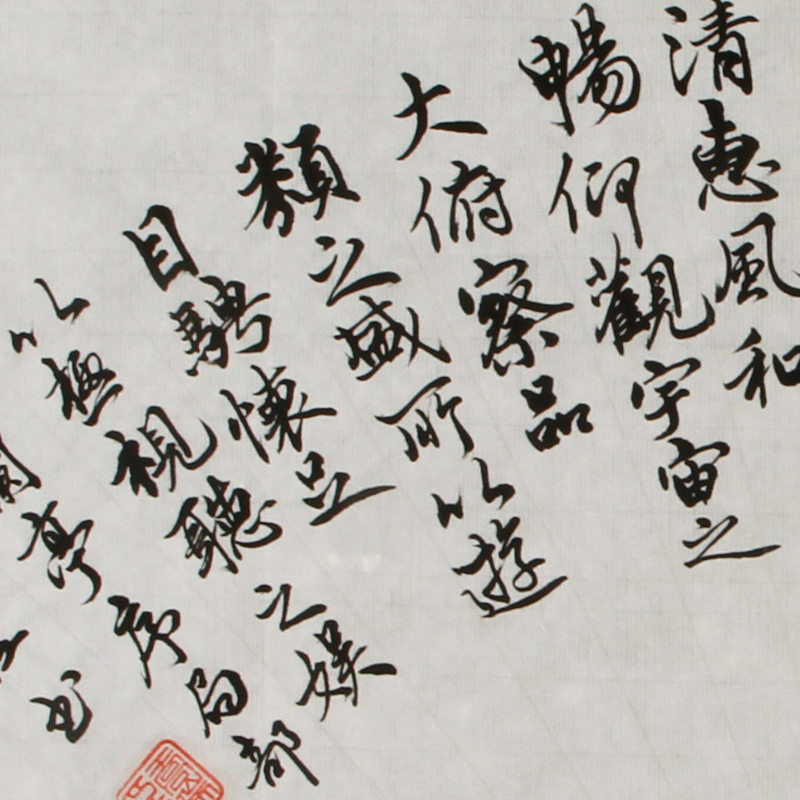 清惠風和
暢仰觀宇宙之
大俯察品
類之盛所以遊
目騁懷足
以極視聽之娛
蘭亭序局部
書